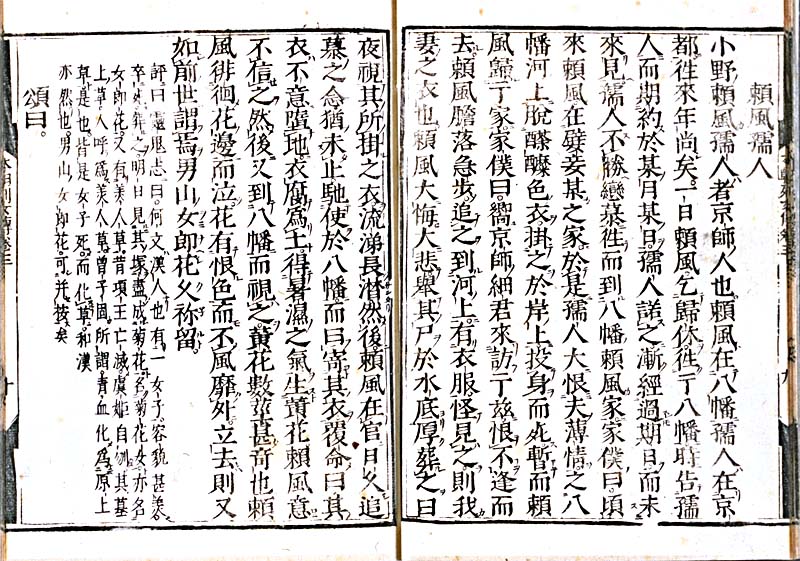 頼風孺人
小野頼風孺人者京師人也頼風在八幡孺人在京
都徃來年尚矣一日頼風乞歸休徃于八幡時告孺
人而期約於某月某日孺人諾之漸經過期日而未
來見孺人不勝戀慕徃而到八幡頼風家家僕曰頃
來頼風在嬖妾某之家於是孺人大恨夫薄情之八
幡河上脫醾色衣掛之於岸上投身而死暫而頼
風歸于家家僕曰嚮京師細君來訪于茲恨不逢而
去頼風膽落急步追之到河上有衣服怪見之則我
妻之衣也頼風大悔大悲舉其尸於水底厚葬之曰
夜視其所掛之衣流涕長潸然後頼風在官日久追
慕之念猶未止馳使於八幡而曰寄其衣覆命曰其
衣不意墮地衣腐爲土得暑濕之氣生黄花頼風意
不信之然後又到八幡而視之黄花數莖甚奇也頼
風徘徊花邊而泣花有恨色而不風靡外立去則又
如前世謂焉男山女郎花久祢留
評曰靈鬼志曰何文漢人也有一女子容貌甚美
卒葬之明日見其塚盡成菊花名菊花女亦名
女郎花又有美人草昔項王亡滅虞姬自刎其墓
上草人呼爲美人草曾子固所謂青血化爲原上
草是也皆是女子死而化草和漢
亦然也男山女郎花可并按矣
頌曰